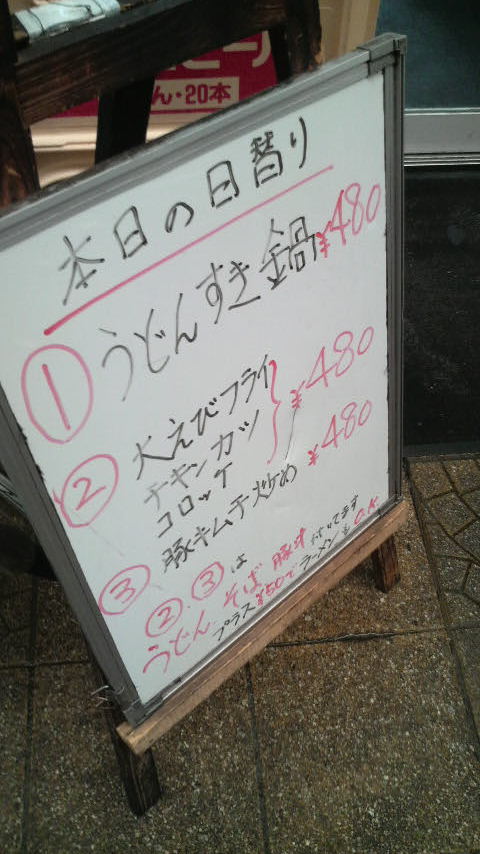 ん・20本
本日の日替り
① うどんすき鍋 ¥480
② 大えびフライ
チキンカツ
コロッケ
¥480
③ 豚キムチ炒め ¥480
②・③は
うどん そば 豚汁 付いてます
プラス¥50でラーメンもO.K